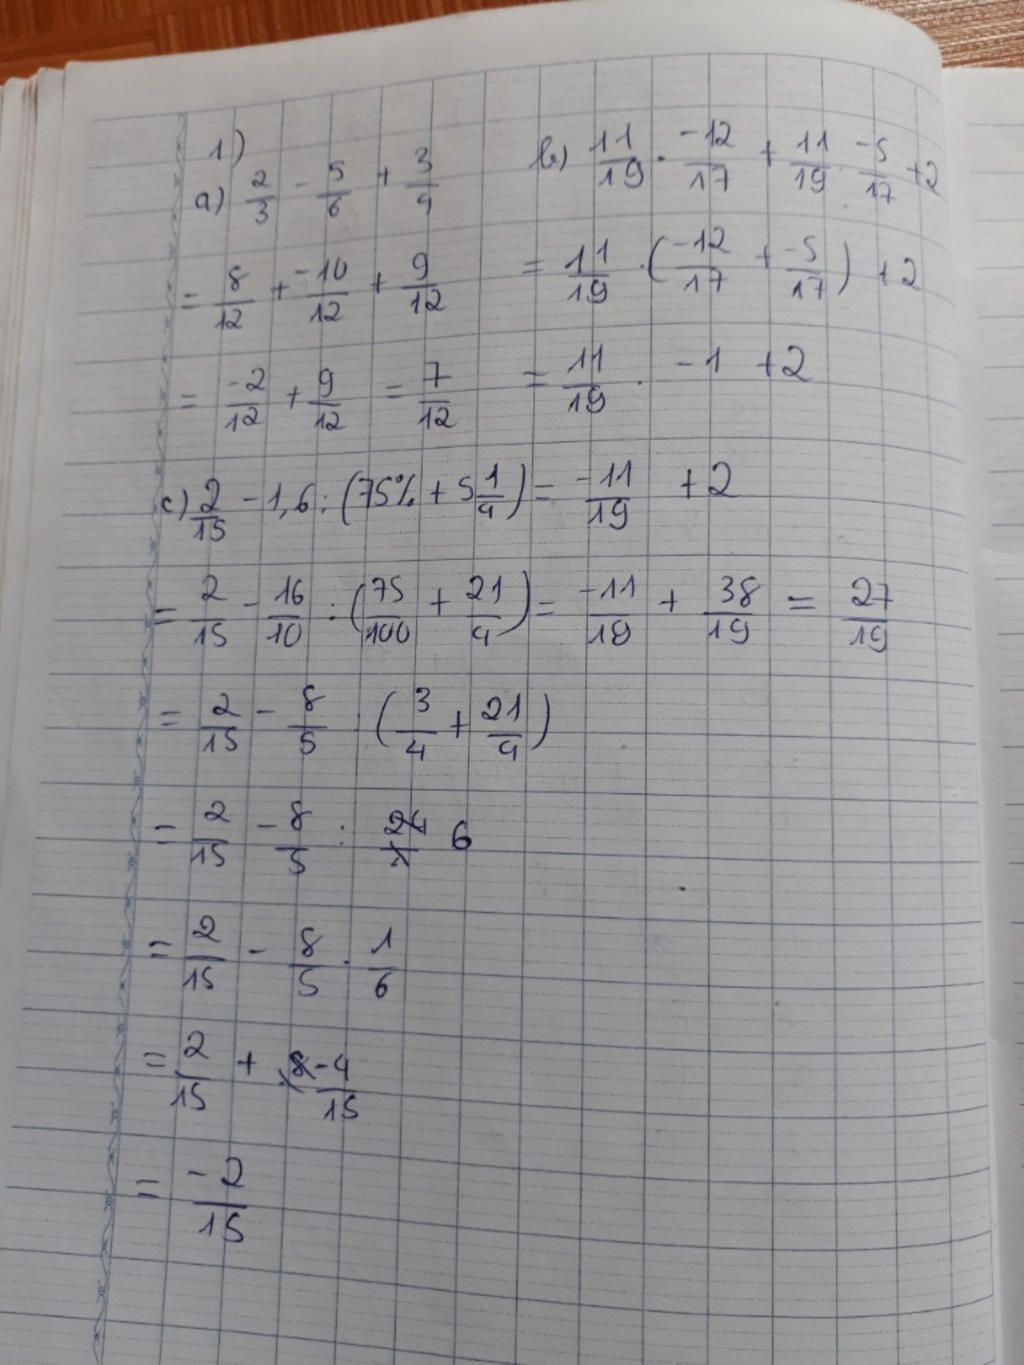 1)
a) 2/3 - 5/6 + 3/4
= 8/12 + -10/12 + 9/12
= -2/12 + 9/12 = 7/12
b) 11/19 . -12/17 + 11/19 . -5/17 + 2
= 11/19 . (-12/17 + -5/17) + 2
= 11/19 . -1 + 2
= -11/19 + 2
= -11/19 + 38/19 = 27/19
c) 2/15 - 1,6 : (75% + 5 1/4)
= 2/15 - 16/10 : (75/100 + 21/4)
= 2/15 - 8/5 : (3/4 + 21/4)
= 2/15 - 8/5 : 24/4 6
= 2/15 - 8/5 . 1/6
= 2/15 + -4/15
= -2/15